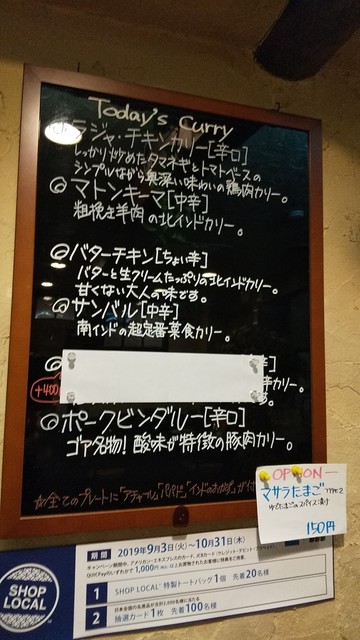 Today's Curry
ラジャ・チキンカリー[辛口]
しっかり炒めたタマネギとトマトベースの
シンプルながら奥深い味わいの鶏肉カリー。
◎マトンキーマ[中辛]
粗挽き羊肉の北インドカリー。
◎バターチキン[ちょい辛]
バターと生クリームたっぷりの北インドカリー。
甘くない大人の味です。
◎サンバル[中辛]
南インドの超定番菜食カリー。
+400
カリー。
◎ポークビンダルー[辛口]
ゴア名物!酸味が特徴の豚肉カリー。
☆全てのプレートに「アチャール」「パパド」
OPTION
マサラたまご
ゆでたまごのスパイス漬け
150円
期間 2019年9月3日(火)〜10月31日(木)
キャンペーン期間中、アメリカン・エキスプレスのカード、JCBカード
1,000円
1 SHOP LOCAL 特製トートバッグ1個 先着20名様
2 抽選カード1枚 先着100名様
SHOP
LOCAL